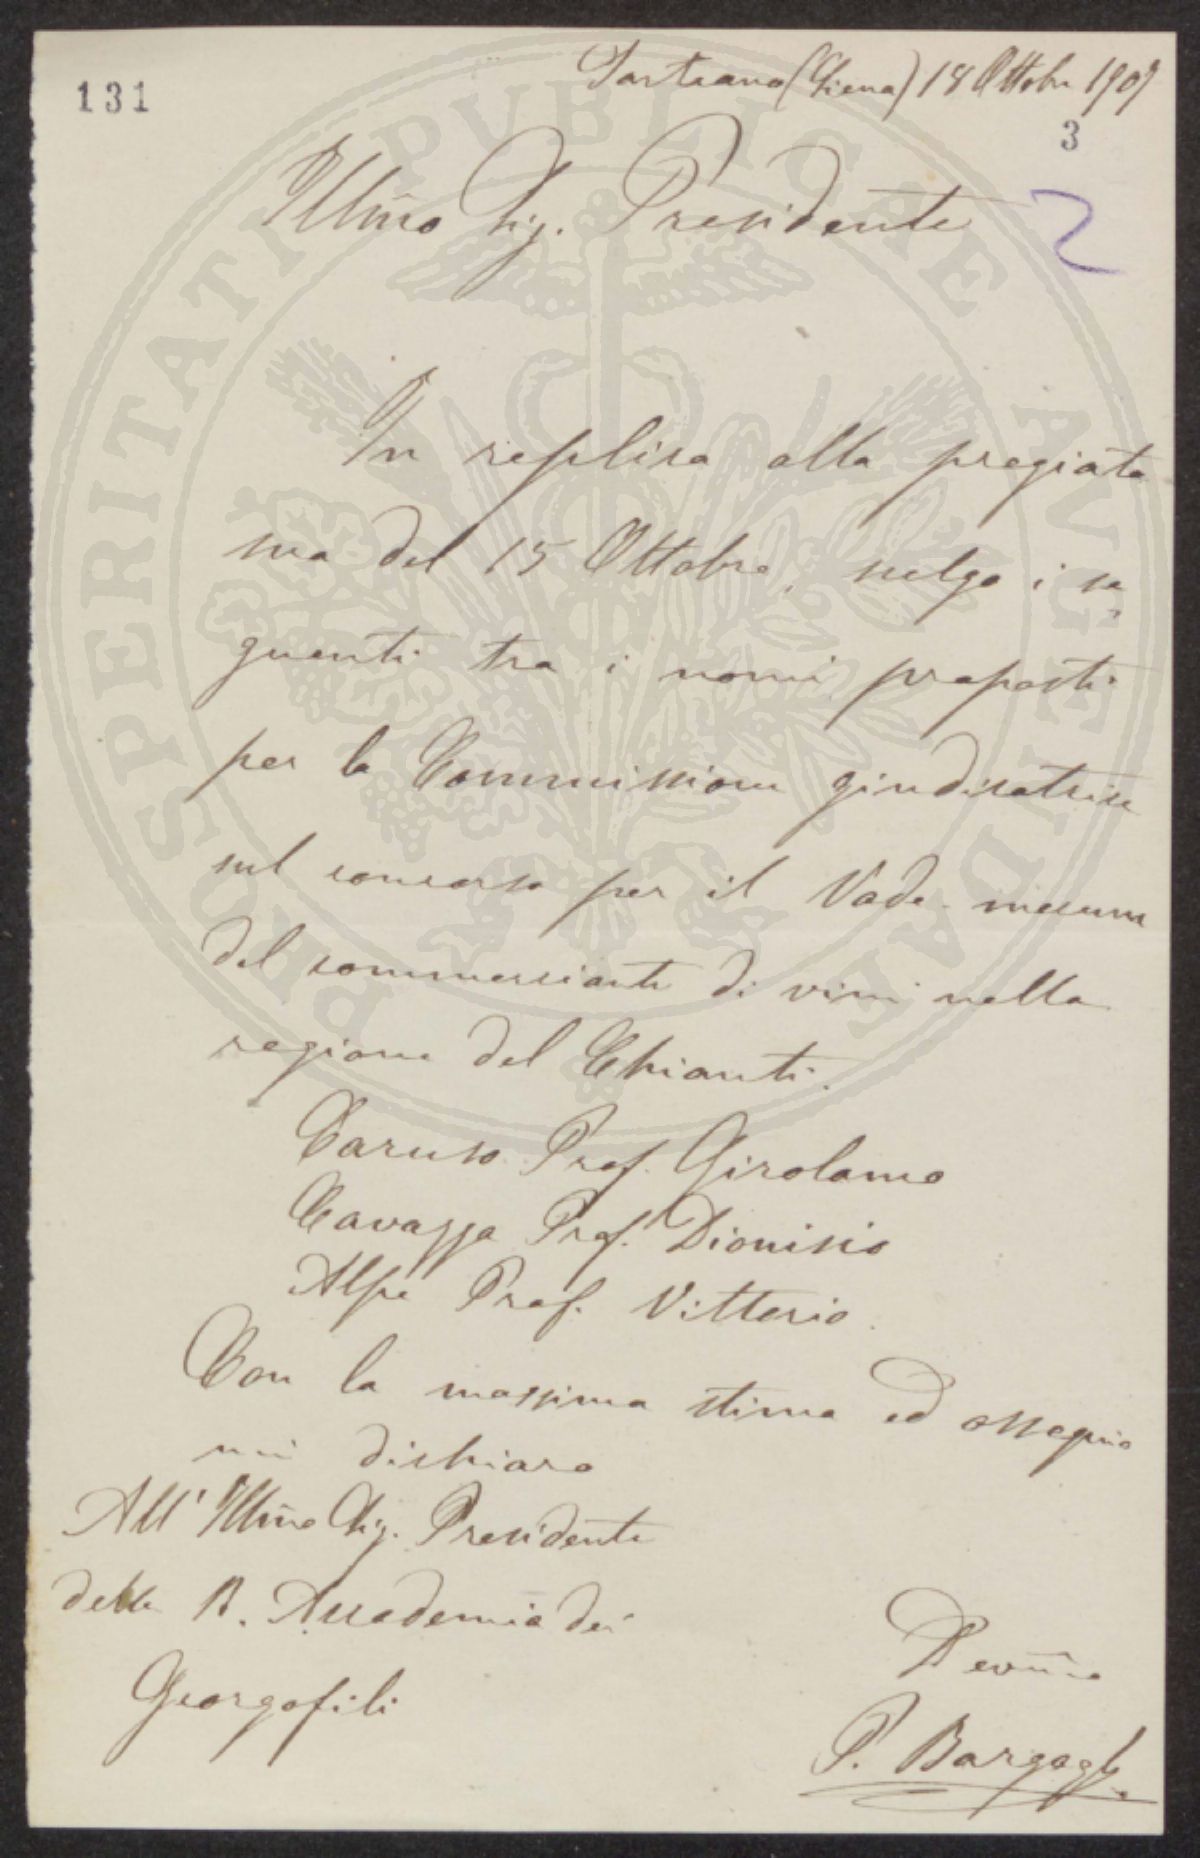 131
Sarteano (Siena) 18 Ottobre 1907
3
2
Illm̃o Sig. Presidente
In replica alla pregiata
sua del 15 Ottobre, scelgo i se=
guenti tra i nomi proposti
per la Commissione giudicatrice
sul concorso per il Vade-mecum
del commerciante di vini nella
regione del Chianti.
Caruso Prof. Girolamo
Cavazza Prof. Dionisio
Alpe Prof. Vittorio.
Con la massima stima ed ossequio
mi dichiaro
All' Illm̃o Sig. Presidente
della R. Accademia dei
Georgofili
Devm̃o
P. Bargagli
PROSPERITATI PUBLICAE AUGENDAE